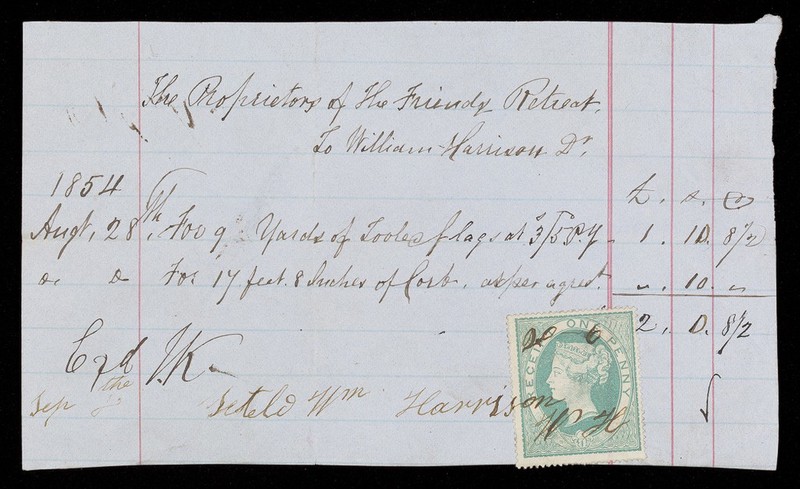 The Proprietors of The Friends Retreat,
To William Harrison Dr.
1854
£. s. D
Augt, 28th, For 9 Yards of Tooled flags at 3/5 P. Y 1. 10. 8½
Do Do For 17 feet 8 Inches of Corb. as per agret. „ 10. „
2, 0. 8½
Cxd J.K.
Sep the Seteld Wm Harrison
20 6
W H
RECEIPT ONE PENNY